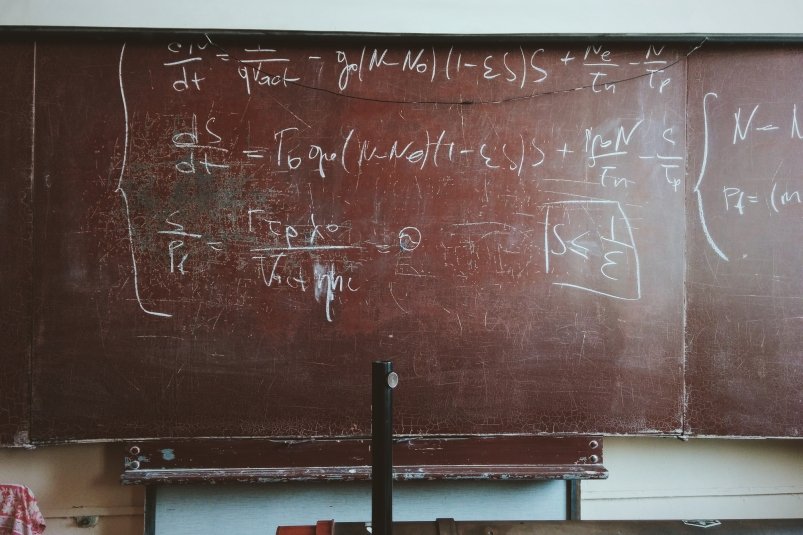 dN/dt = 1/(qVact) - g₀(N-N₀)(1-εS)S + Ne/τn - N/τp
dS/dt = Γ₀g₀(N-N₀)(1-εS)S + N/τn - S/τp
S/Pf = Γτpλ₀/(Vact ηhc) = ②
S ≤ 1/ε
N = N
Pf = (m